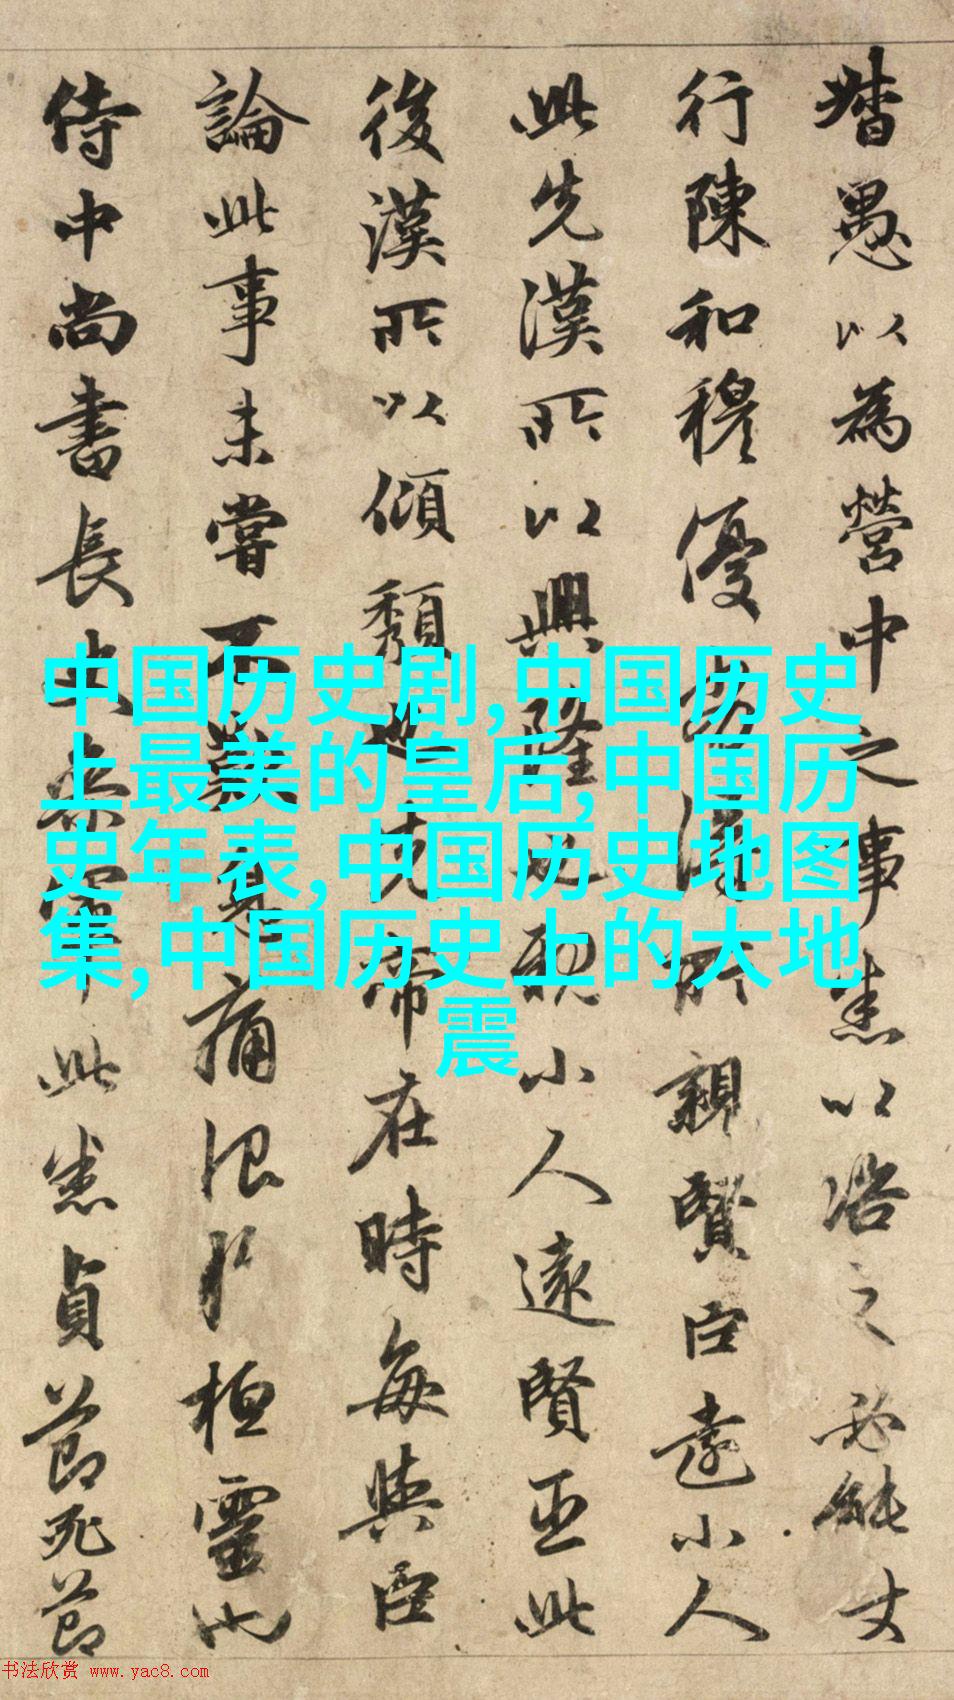 督愚以為營中之事悉以咨之必能丈
行陳和穆優劣得所親賢臣遠小人
此先漢所以興隆也親小人遠賢臣此
後漢所以傾頹也先帝在時每與臣
論此事未嘗不歎息痛恨於桓靈也
侍中尚書長史參軍此悉貞節死節
中国历史剧,中国历史
上最美的皇后,中国历
史年表,中国历史地图
集,中国历史上的大地
震
书法欣赏 www.yac8.com